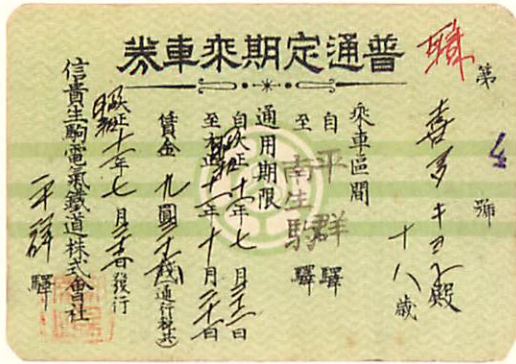 普通定期乘車券
職
第 號
喜多キヨ子殿
十八歳
乘車區間
自平群驛
至南生駒驛
通用期限
自昭和十一年七月二十二日
至昭和十一年十月二十一日
賃金九圓
(通行税共)
昭和十一年七月 日發行
信貴生駒電氣鐵道株式會社
平群驛